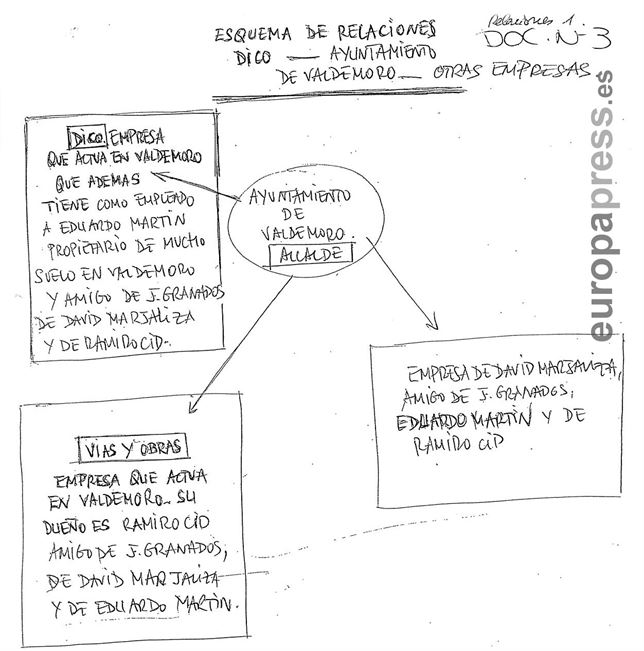 Relaciones 1.
DOC. Nº 3
ESQUEMA DE RELACIONES
DICO — AYUNTAMIENTO
DE VALDEMORO — OTRAS EMPRESAS
DICO EMPRESA
QUE ACTUA EN VALDEMORO
QUE ADEMAS
TIENE COMO EMPLEADO
A EDUARDO MARTIN
PROPIETARIO DE MUCHO
SUELO EN VALDEMORO
Y AMIGO DE J. GRANADOS
DE DAVID MARJALIZA
Y DE RAMIRO CID.
AYUNTAMIENTO
DE
VALDEMORO.
ALCALDE
EMPRESA DE DAVID MARJALIZA,
AMIGO DE J. GRANADOS,
EDUARDO MARTIN Y DE
RAMIRO CID
VIAS Y OBRAS
EMPRESA QUE ACTUA
EN VALDEMORO. SU
DUEÑO ES RAMIRO CID
AMIGO DE J. GRANADOS,
DE DAVID MARJALIZA
Y DE EDUARDO MARTIN.
europapress.es